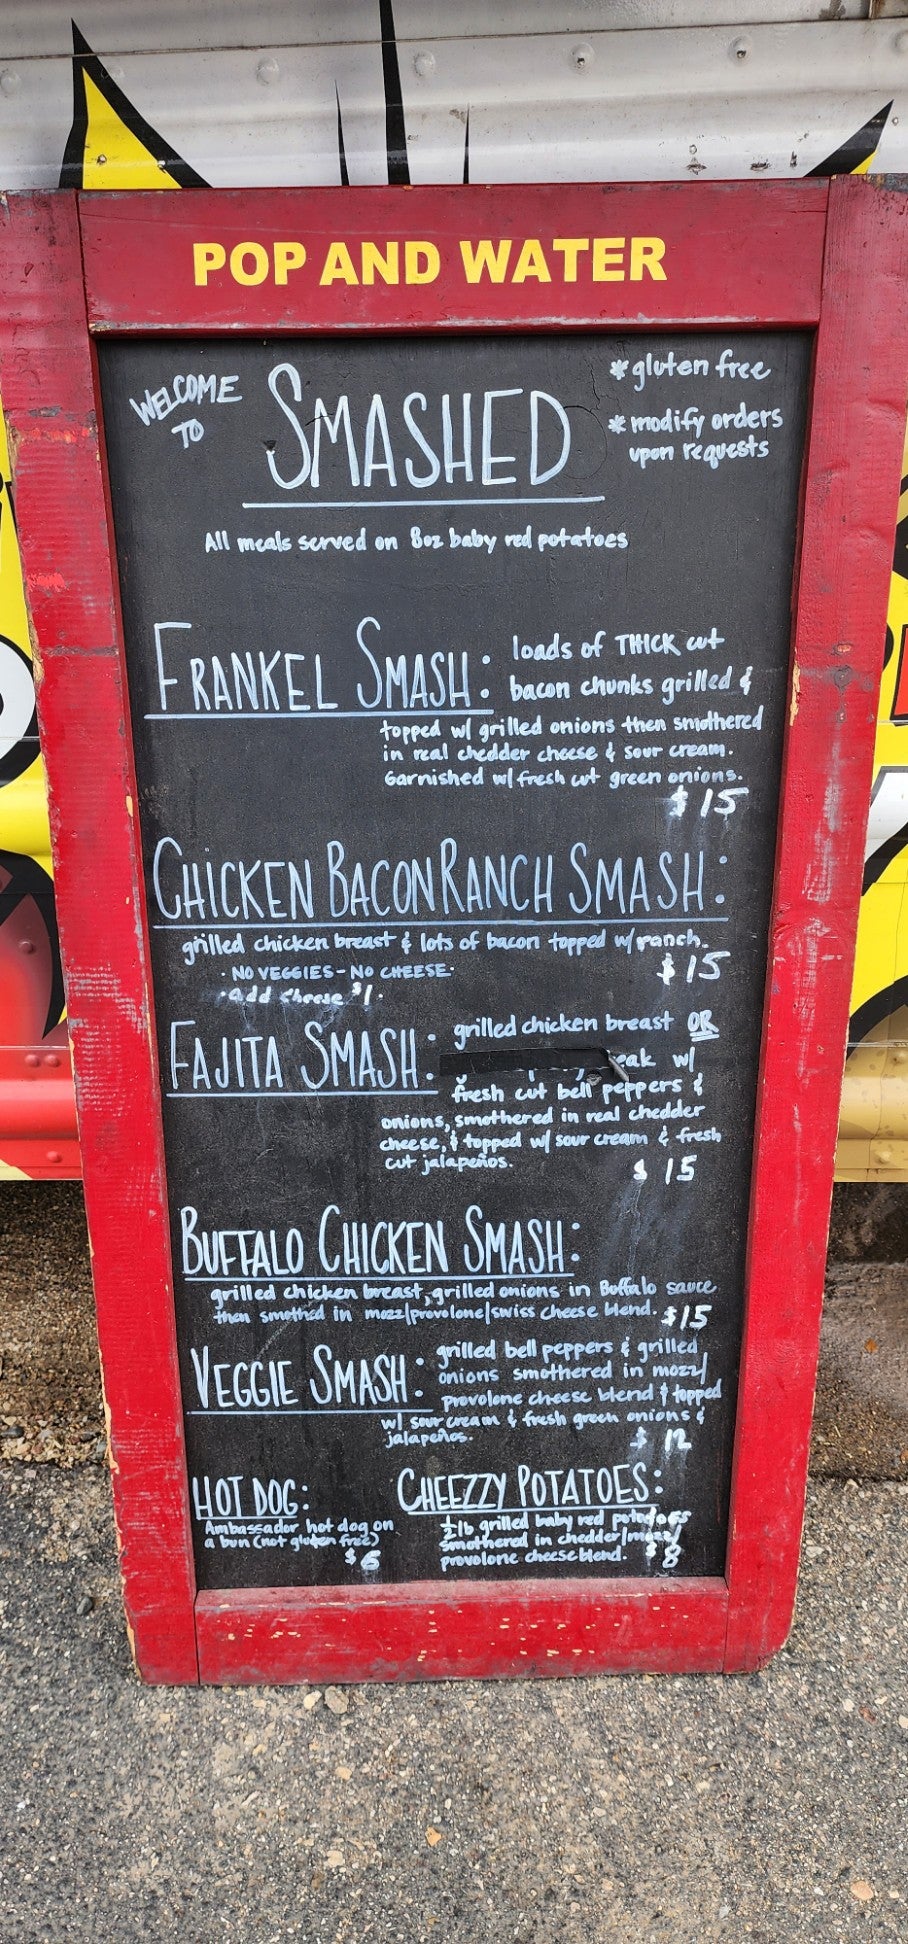 POP AND WATER
WELCOME
TO
SMASHED
*gluten free
*modify orders
upon requests
All meals served on 8oz baby red potatoes
FRANKEL SMASH: loads of THICK cut
bacon chunks grilled &
topped w/ grilled onions then smothered
in real chedder cheese & sour cream.
Garnished w/ fresh cut green onions.
$15
CHICKEN BACON RANCH SMASH:
grilled chicken breast & lots of bacon topped w/ ranch.
· NO VEGGIES - NO CHEESE · $15
· Add cheese $1 ·
FAJITA SMASH: grilled chicken breast OR
w/
fresh cut bell peppers &
onions, smothered in real chedder
cheese, & topped w/ sour cream & fresh
cut jalapeños.
$ 15
BUFFALO CHICKEN SMASH:
grilled chicken breast, grilled onions in Buffalo sauce
then smothed in mozz/provolone/swiss cheese blend. $15
VEGGIE SMASH: grilled bell peppers & grilled
onions smothered in mozz/
provolone cheese blend & topped
w/ sour cream & fresh green onions &
jalapeños.
$ 12
HOT DOG:
Ambassador hot dog on
a bun (not gluten free)
$6
CHEEZZY POTATOES:
½lb grilled baby red potatoes
smothered in chedder/mozz/
provolone cheese blend. $8